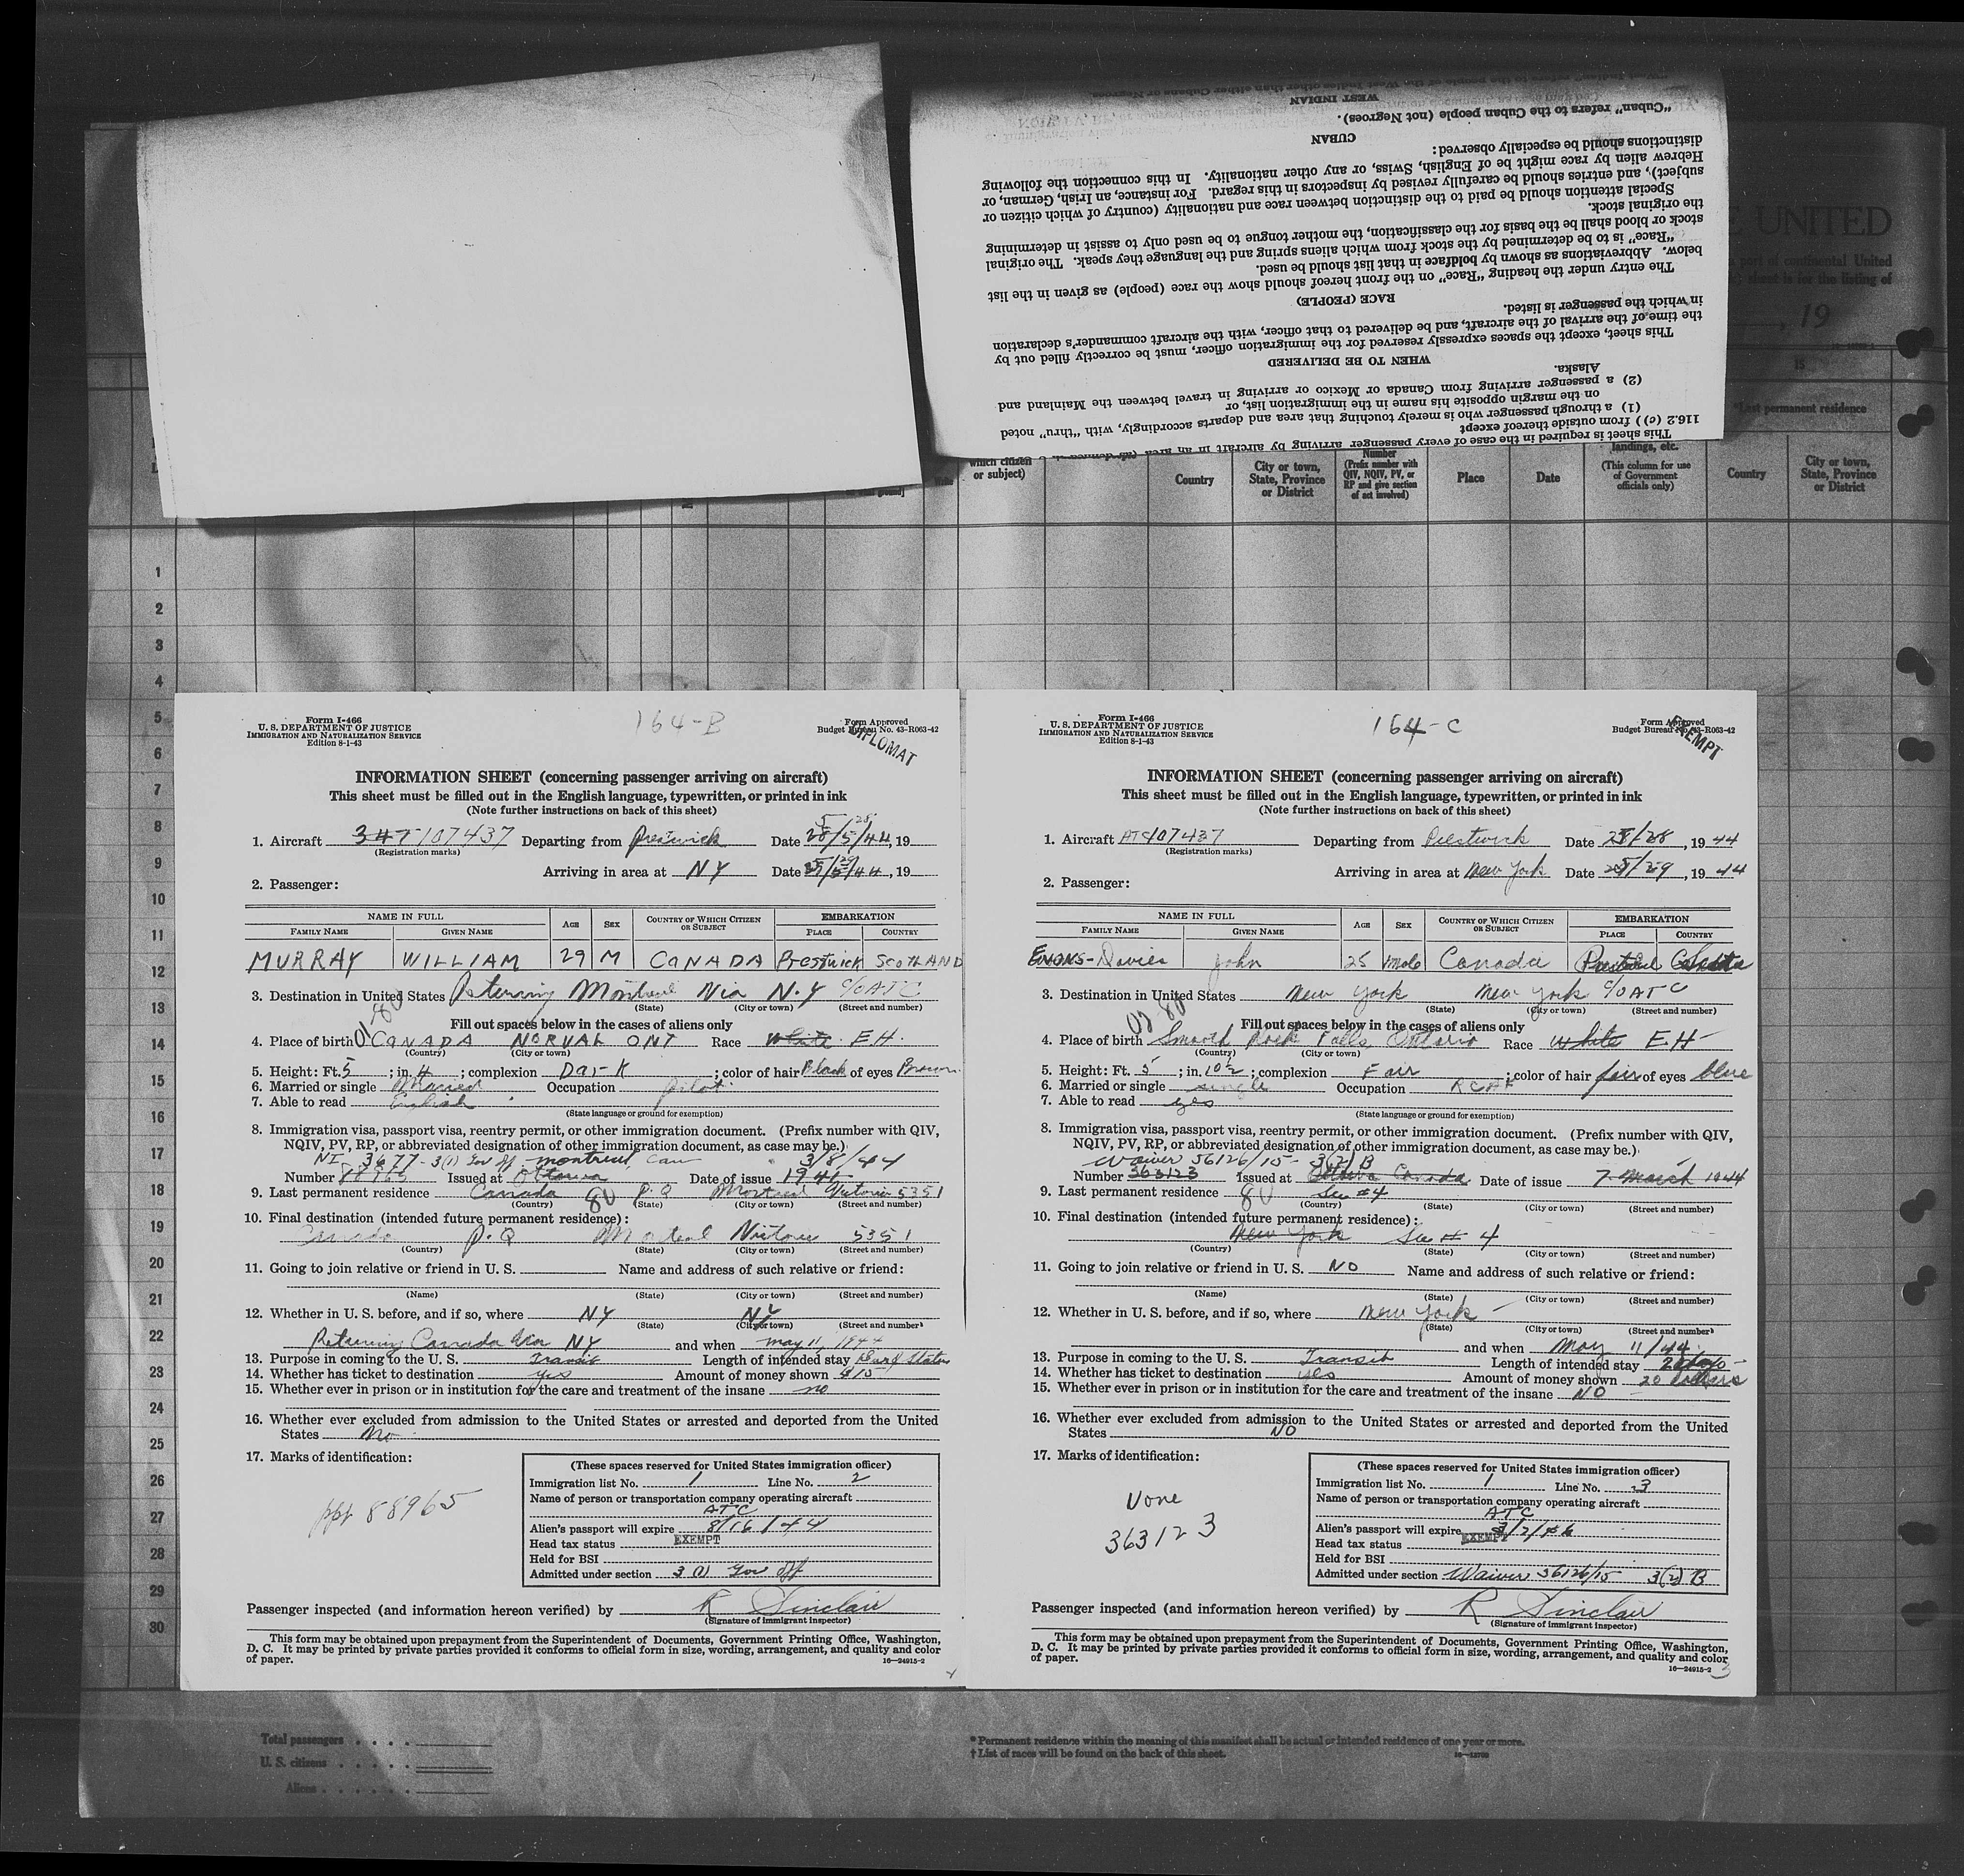 "Cuban" refers to the Cuban people (not Negroes).
WEST INDIAN
CUBAN
distinctions should be especially observed:
Hebrew alien by race might be of English, Swiss, or any other nationality. In this connection the following
subject), and entries should be carefully revised by inspectors in this regard. For instance, an Irish, German, or
Special attention should be paid to the distinction between race and nationality (country of which citizen or
the original stock.
stock or blood shall be the basis for the classification, the mother tongue to be used only to assist in determining
"Race" is to be determined by the stock from which aliens spring and the language they speak. The original
below. Abbreviations as shown by boldface in that list should be used.
The entry under the heading "Race" on the front hereof should show the race (people) as given in the list
RACE (PEOPLE)
in which the passenger is listed.
the time of the arrival of the aircraft, and be delivered to that officer, with the aircraft commander's declaration
This sheet, except the spaces expressly reserved for the immigration officer, must be correctly filled out by
WHEN TO BE DELIVERED
Alaska.
(2) a passenger arriving from Canada or Mexico or arriving in travel between the Mainland and
on the margin opposite his name in the immigration list, or
(1) a through passenger who is merely touching that area and departs accordingly, with "thru" noted
116.2 (c)) from outside thereof except
This sheet is required in the case of every passenger arriving by aircraft in an area
E UNITED
part of continental United
sheet is for the listing of
, 19
*Last permanent residence
which citizen or subject)
Country
City or town, State, Province or District
Number (Prefix number with QIV, NQIV, PV, or RP and give section of act involved)
Place
Date
landings, etc. (This column for use of Government officials only)
Country
City or town, State, Province or District
1
2
3
4
5
6
7
8
9
10
11
12
13
14
15
16
17
18
19
20
21
22
23
24
25
26
27
28
29
30
Form I-466
U. S. DEPARTMENT OF JUSTICE
IMMIGRATION AND NATURALIZATION SERVICE
Edition 8-1-43
164-B
Form Approved
Budget Bureau No. 43-R063-42
DIPLOMAT
INFORMATION SHEET (concerning passenger arriving on aircraft)
This sheet must be filled out in the English language, typewritten, or printed in ink
(Note further instructions on back of this sheet)
1. Aircraft 347 107437 Departing from Prestwick Date 5/28/44, 19
(Registration marks)
Arriving in area at NY Date 5/29/44, 19
2. Passenger:
NAME IN FULL AGE SEX COUNTRY OF WHICH CITIZEN OR SUBJECT EMBARKATION
FAMILY NAME GIVEN NAME PLACE COUNTRY
MURRAY WILLIAM 29 M CANADA Prestwick SCOTLAND
3. Destination in United States Returning Montreal Via N.Y c/o ATC
(State) (City or town) (Street and number)
Fill out spaces below in the cases of aliens only
4. Place of birth CANADA NORVAL ONT Race White EH.
(Country) (City or town)
5. Height: Ft. 5; in. 4; complexion Dark; color of hair Black of eyes Brown
6. Married or single Married Occupation pilot
7. Able to read English
(State language or ground for exemption)
8. Immigration visa, passport visa, reentry permit, or other immigration document. (Prefix number with QIV,
NQIV, PV, RP, or abbreviated designation of other immigration document, as case may be.)
NI 3677 - 3(1) Gov Off - montreal, Can 3/8/44
Number 88965 Issued at Ottawa Date of issue 1941
9. Last permanent residence Canada 80 P.Q Montreal Victoria 5351
(Country) (State) (City or town) (Street and number)
10. Final destination (intended future permanent residence):
Canada P.Q Montreal Victoria 5351
(Country) (State) (City or town) (Street and number)
11. Going to join relative or friend in U. S. Name and address of such relative or friend:
(Name) (State) (City or town) (Street and number)
12. Whether in U. S. before, and if so, where NY NY
(State) (City or town) (Street and number)
Returning Canada Via NY and when may 11, 1944
13. Purpose in coming to the U. S. Transit Length of intended stay
14. Whether has ticket to destination yes Amount of money shown $15
15. Whether ever in prison or in institution for the care and treatment of the insane no
16. Whether ever excluded from admission to the United States or arrested and deported from the United
States no
17. Marks of identification:
ppt 88965
(These spaces reserved for United States immigration officer)
Immigration list No. 1 Line No. 2
Name of person or transportation company operating aircraft
ATC
Alien's passport will expire 8/16/44
Head tax status EXEMPT
Held for BSI
Admitted under section 3 (1) Gov off
Passenger inspected (and information hereon verified) by R Sinclair
(Signature of immigrant inspector)
This form may be obtained upon prepayment from the Superintendent of Documents, Government Printing Office, Washington,
D. C. It may be printed by private parties provided it conforms to official form in size, wording, arrangement, and quality and color
of paper.
16—24915-2
Form I-466
U. S. DEPARTMENT OF JUSTICE
IMMIGRATION AND NATURALIZATION SERVICE
Edition 8-1-43
164-C
Form Approved
Budget Bureau No. 43-R063-42
EXEMPT
INFORMATION SHEET (concerning passenger arriving on aircraft)
This sheet must be filled out in the English language, typewritten, or printed in ink
(Note further instructions on back of this sheet)
1. Aircraft ATC 107437 Departing from Prestwick Date 5/28, 19 44
(Registration marks)
Arriving in area at New York Date 5/29, 19 44
2. Passenger:
NAME IN FULL AGE SEX COUNTRY OF WHICH CITIZEN OR SUBJECT EMBARKATION
FAMILY NAME GIVEN NAME PLACE COUNTRY
EVANS-Davies John 25 Male Canada Prestwick
3. Destination in United States New York New York c/o ATC
(State) (City or town) (Street and number)
Fill out spaces below in the cases of aliens only
4. Place of birth Smooth Rock Falls, Ontario Race White EH
(Country) (City or town)
5. Height: Ft. 5; in. 10½; complexion Fair; color of hair fair of eyes blue
6. Married or single single Occupation RCAF
7. Able to read yes
(State language or ground for exemption)
8. Immigration visa, passport visa, reentry permit, or other immigration document. (Prefix number with QIV,
NQIV, PV, RP, or abbreviated designation of other immigration document, as case may be.)
Waiver 56126/15 - 3(2) B
Number 363123 Issued at Ottawa Canada Date of issue 7 March 1944
9. Last permanent residence 80 See #4
(Country) (State) (City or town) (Street and number)
10. Final destination (intended future permanent residence):
New York See # 4
(Country) (State) (City or town) (Street and number)
11. Going to join relative or friend in U. S. NO Name and address of such relative or friend:
(Name) (State) (City or town) (Street and number)
12. Whether in U. S. before, and if so, where New York
(State) (City or town) (Street and number)
and when May 11/44
13. Purpose in coming to the U. S. Transit Length of intended stay 2 days
14. Whether has ticket to destination yes Amount of money shown 20 dollars
15. Whether ever in prison or in institution for the care and treatment of the insane NO
16. Whether ever excluded from admission to the United States or arrested and deported from the United
States NO
17. Marks of identification:
None
363123
(These spaces reserved for United States immigration officer)
Immigration list No. 1 Line No. 3
Name of person or transportation company operating aircraft
ATC
Alien's passport will expire 3/2/46
Head tax status EXEMPT
Held for BSI
Admitted under section Waiver 56126/15 3(2) B
Passenger inspected (and information hereon verified) by R Sinclair
(Signature of immigrant inspector)
This form may be obtained upon prepayment from the Superintendent of Documents, Government Printing Office, Washington,
D. C. It may be printed by private parties provided it conforms to official form in size, wording, arrangement, and quality and color
of paper.
16—24915-2
3
Total passengers
U. S. citizens
Aliens
* Permanent residence within the meaning of this manifest shall be actual or intended residence of one year or more.
† List of races will be found on the back of this sheet.